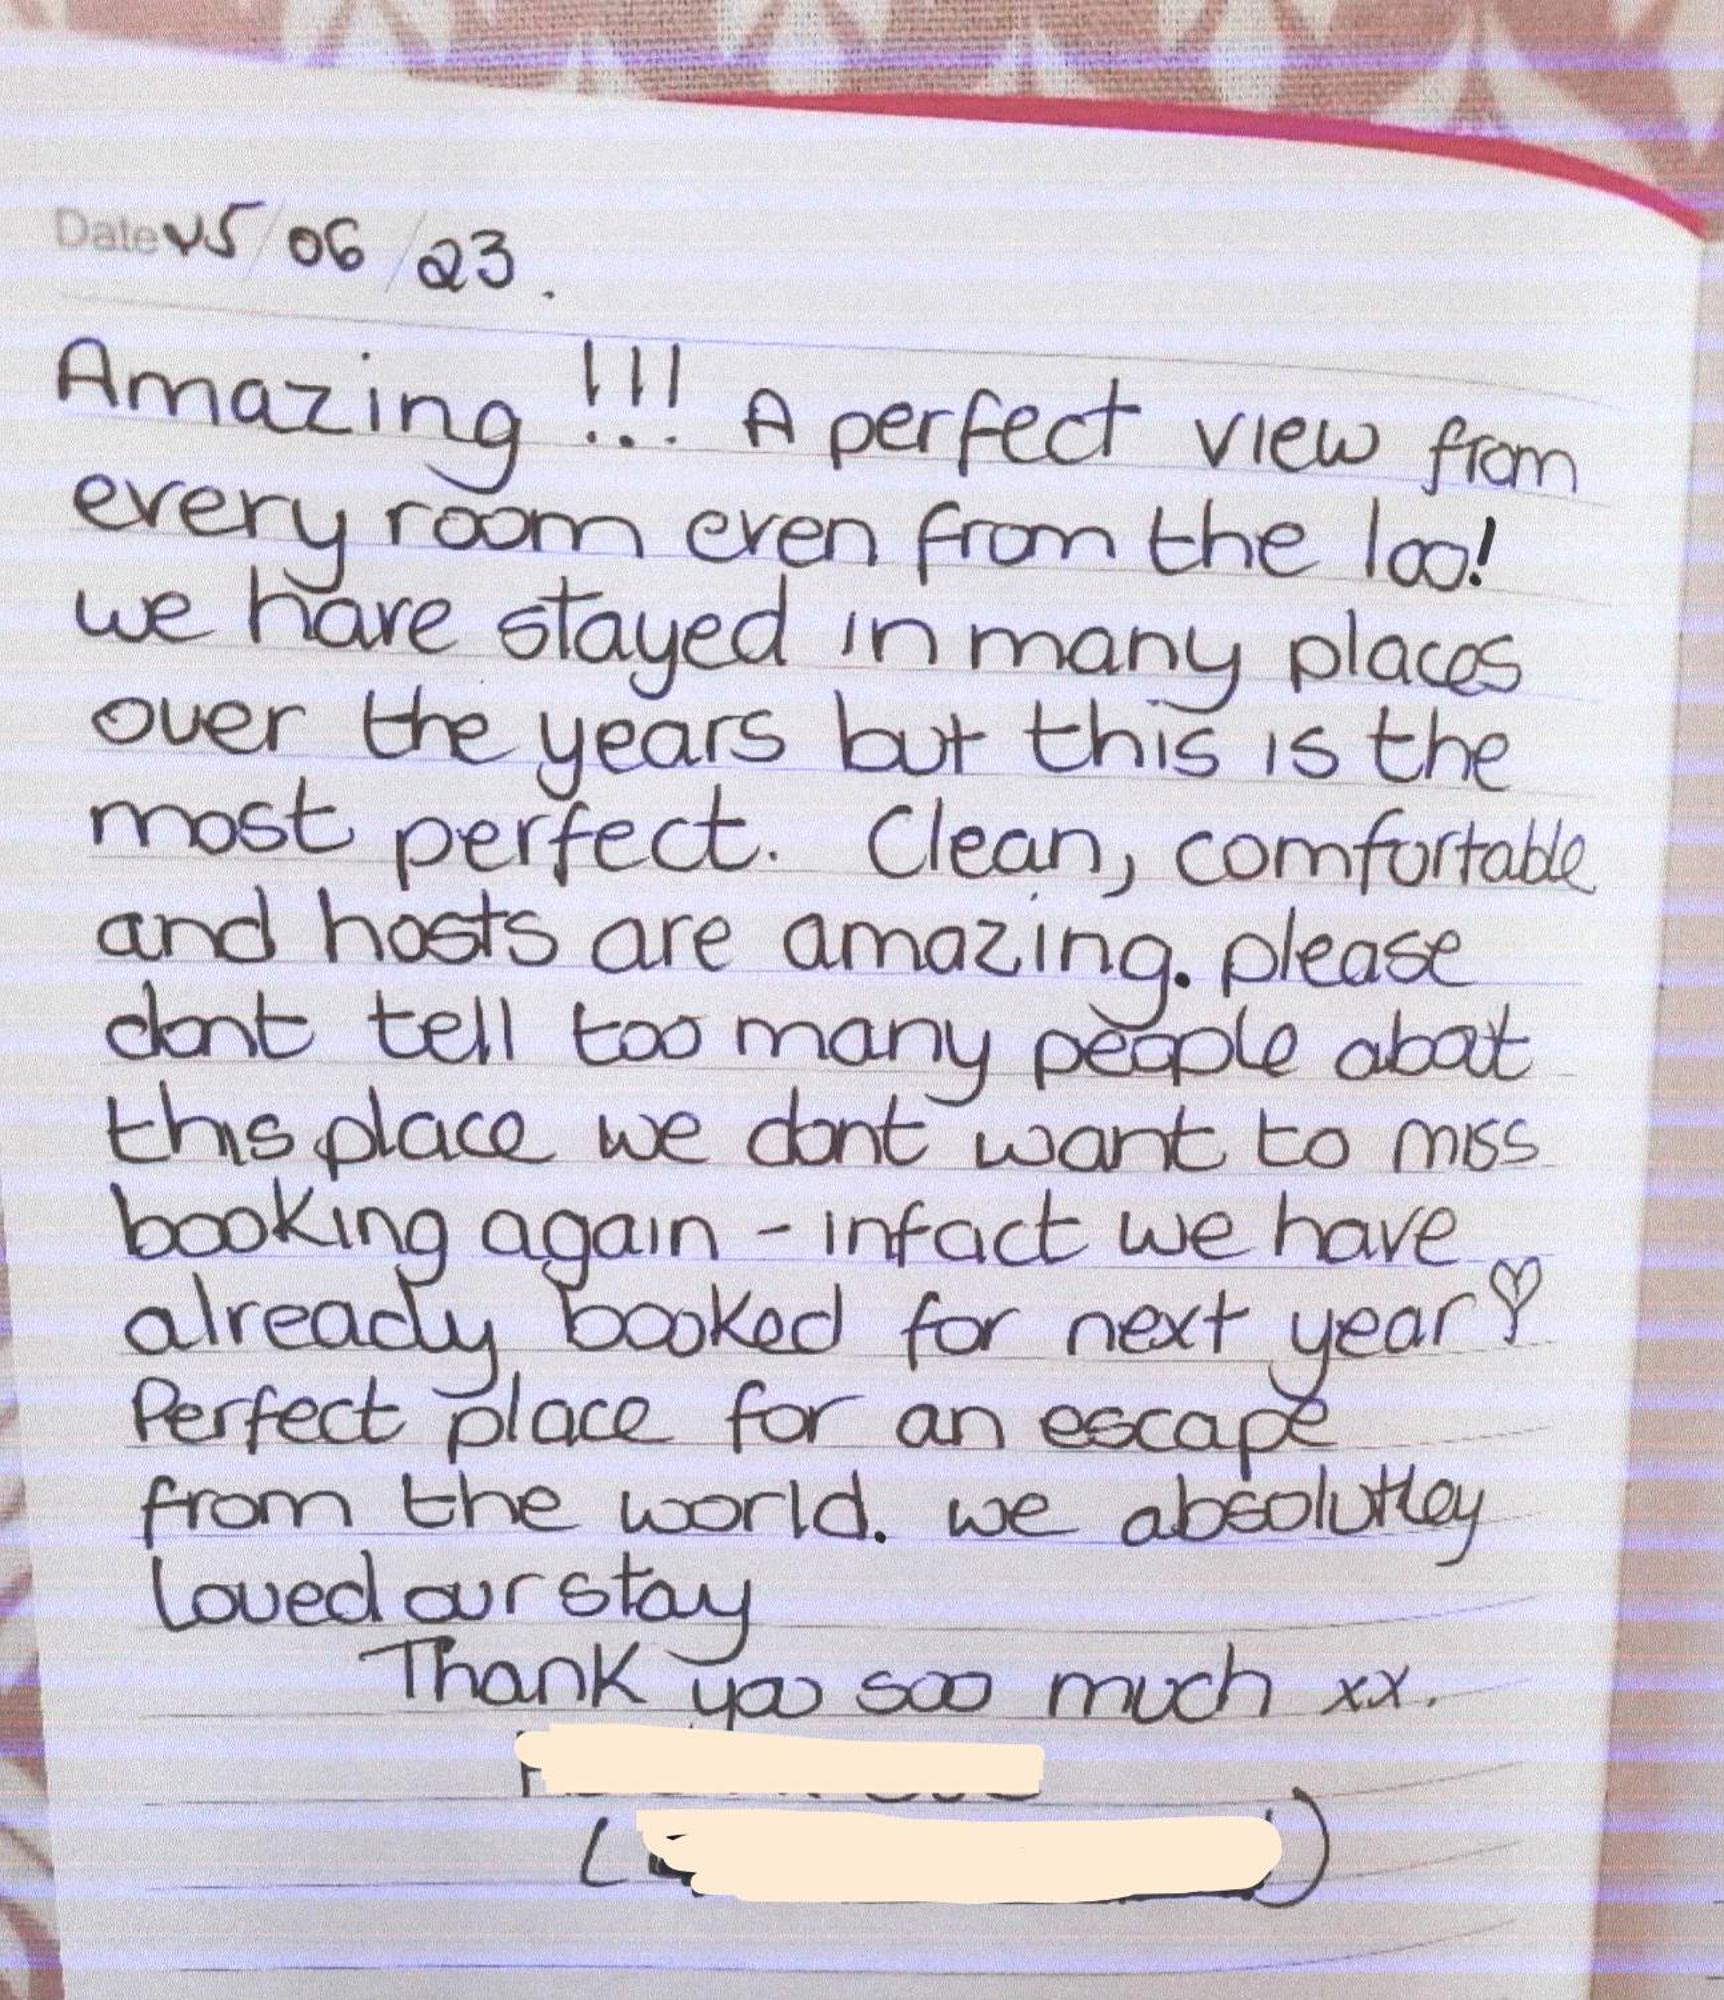 Date 15/06/23.
Amazing!!! A perfect view from
every room even from the loo!
we have stayed in many places
over the years but this is the
most perfect. Clean, comfortable
and hosts are amazing. please
dont tell too many people about
this place we dont want to miss
booking again - infact we have
already booked for next year♡
Perfect place for an escape
from the world. we absolutley
loved our stay
Thank you soo much xx.